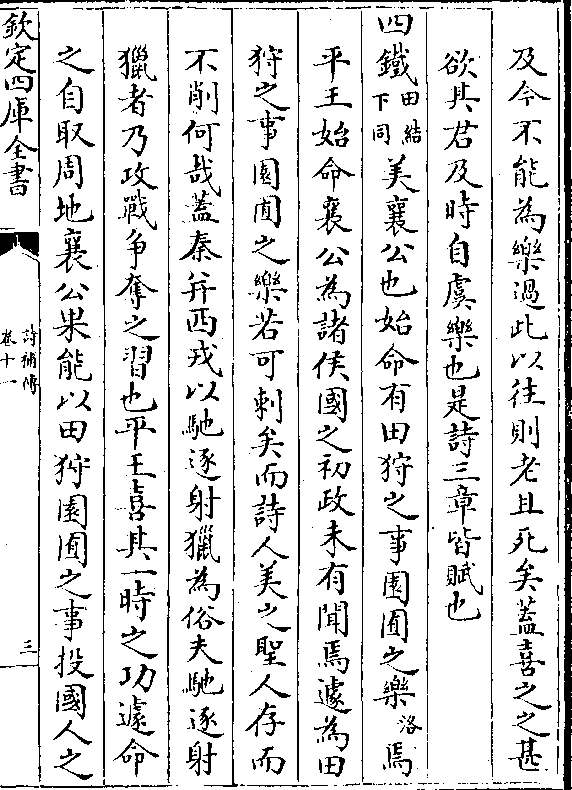 及今不能為樂過此以往則老且死矣蓋喜之之甚
欲其君及時自虞樂也是詩三章皆賦也
四鐵田結下同美襄公也始命有田狩之事園囿之樂洛焉
平王始命襄公為諸侯國之初政未有聞焉遽為田
狩之事園囿之樂若可刺矣而詩人美之聖人存而
不削何哉蓋秦并西戎以馳逐射獵為俗夫馳逐射
獵者乃攻戰爭奪之習也平王喜其一時之功遽命
之自取周地襄公果能以田狩園囿之事投國人之
欽定四庫全書
詩補傳
卷十一
三